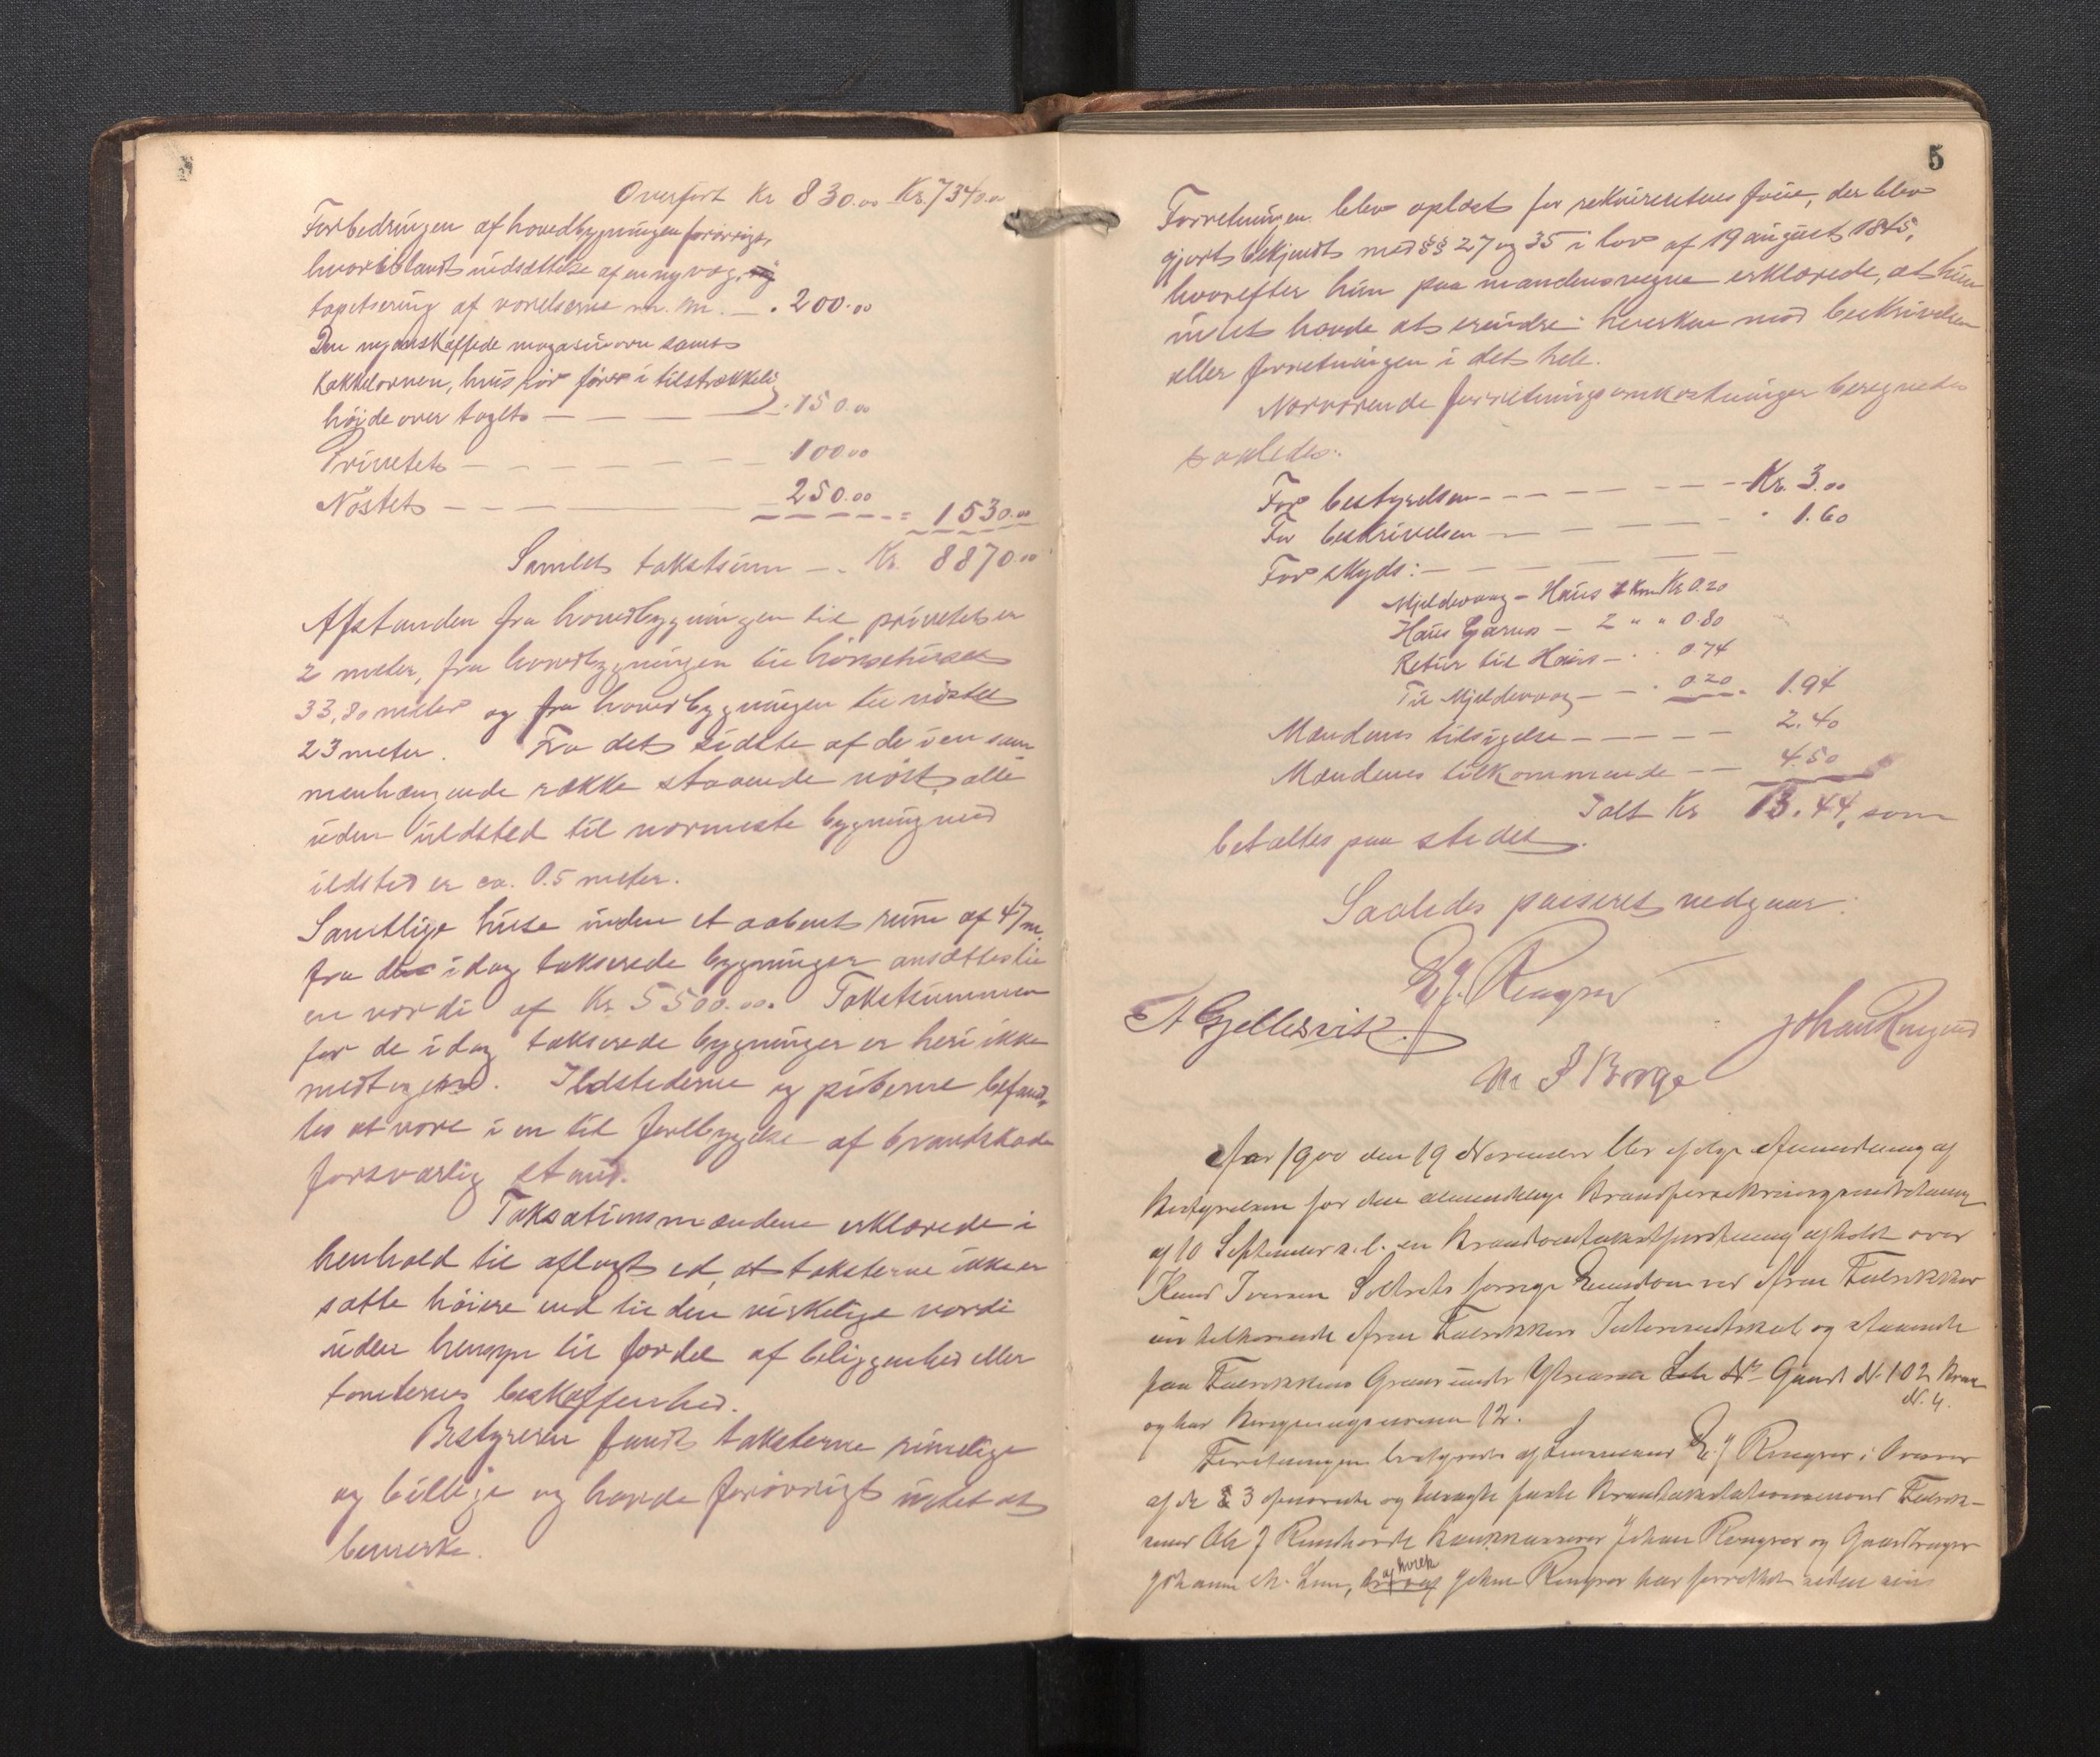 Overført Kr 830.00 Kr. 7340.00
Forbedringen af hovedbygningen forøvrigt,
hvoriblandt indsættelse af en ny væg,
tapetsering af værelserne m. m. — . 200.00
Den nyanskaffede magasinovn samt
kakkelovnen, hvis rør fører i tilstrækkelig
høide over taget — — — . 150.00
Privetet — — — — — 100.00
Nöstet — — — 250.00
= 1530.00
Samlet takstsum — . Kr. 8870.00
Afstanden fra hovedbygningen til privetet er
2 meter, fra hovedbygningen til hönsehuset
33,80 meter og fra hovedbygningen til nöstet
23 meter. Fra det sidste af de i en sam
menhængende række staaende nöst, alle
uden ildsted til nærmeste bygning med
ildsted er ca. 0.5 meter.
Samtlige huse inden et aabent rum af 47 m.
fra de idag takserede bygninger ansættes til
en værdi af Kr. 5500.00. Takstsummen
for de idag takserede bygninger er heri ikke
medtagen. Ildstederne og piberne befand,
tes at være i en til forebyggelse af brandskade
forsvarlig stand.
Taksationsmændene erklærede i
henhold til aflagt ed, at taksterne ikke er
satte höiere end til den virkelige værdi
uden hensyn til fordel af beliggenhed eller
tomternes beskaffenhed.
Bestyreren fandt taksterne rimelige
og billige og havde forøvrigt intet at
bemerke.
5
Forretningen blev oplæst for rekvirentens frue, der blev
gjort bekjendt med §§ 27 og 35 i lov af 19 august 1845,
hvorefter hun paa mandens vegne erklærede, at hun
intet havde at erindre hverken mod beskrivelsen
eller forretningen i det hele.
Nærværende forretningsomkostninger beregnedes
saaledes:
For bestyrelsen — — — — Kr. 3.00
For beskrivelsen — — — — " 1.60
For skyds: — — — —
Mjeldevaag – Haus 1 Km Kr 0.20
Haus Gjærnes – 2 " " 0.80
Retur til Haus – . . 0.74
Til Mjeldevaag – – . 0.20 . 1.94
Mændenes tilsigelse — — — — 2.40
Mændenes tilkommende — — 4.50
Ialt Kr 13.44, som
betaltes paa stedet.
Saaledes passeret vedgaar:
Rengver
A Gjellesvik. Johan Rengver
M J Borge
Aar 1900 den 19 November blev ifølge Anmodning af
Bestyrelsen for den almindelige Brandforsikringsindretning
af 10 September s. l. en Brandomtakstforretning afholdt over
Knud Iversen Soltvets forrige Eiendom ved Arne Fabrikker
nu tilhørende Arne Fabrikkers Interessentskab og staaende
paa Fabrikkens Grund under Ytre Arne Gaards N. 102 Brux
N. 4.
og har Bygningsnummer 12.
Forretningen bestyredes af Lensmand Rengver i Overvær
af de 3 opnævnte og edsvorne faste Brandtakstationsmænd Fabrik-
Ole J Rundhovde Bankkasserer Johan Rengver og Gaardbruger
Johannes M. Lien, af hvilke Johan Rengver har forrettet siden sin